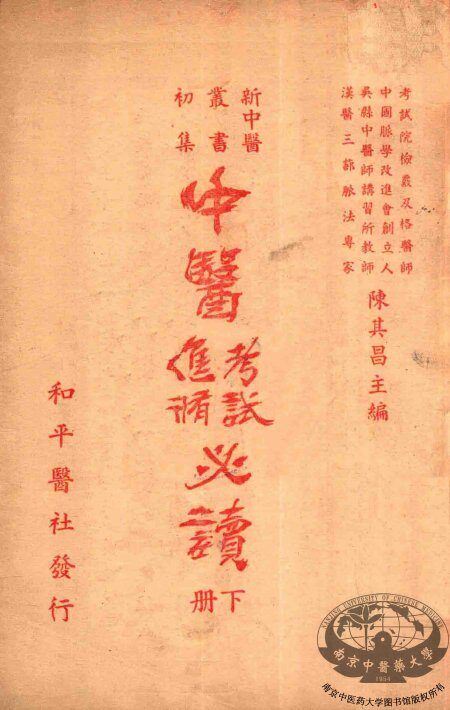 考試院檢覈及格醫師
中國脈學改進會創立人
吳縣中醫師講習所教師
漢醫三部脈法專家
陳其昌主編
新中醫
叢書
初集
中醫
考試
進修
必讀
下
册
和平醫社發行
NANJING UNIVERSITY OF CHINESE MEDICINE
南京中醫藥大學
1954
南京中医药大学图书馆版权所有